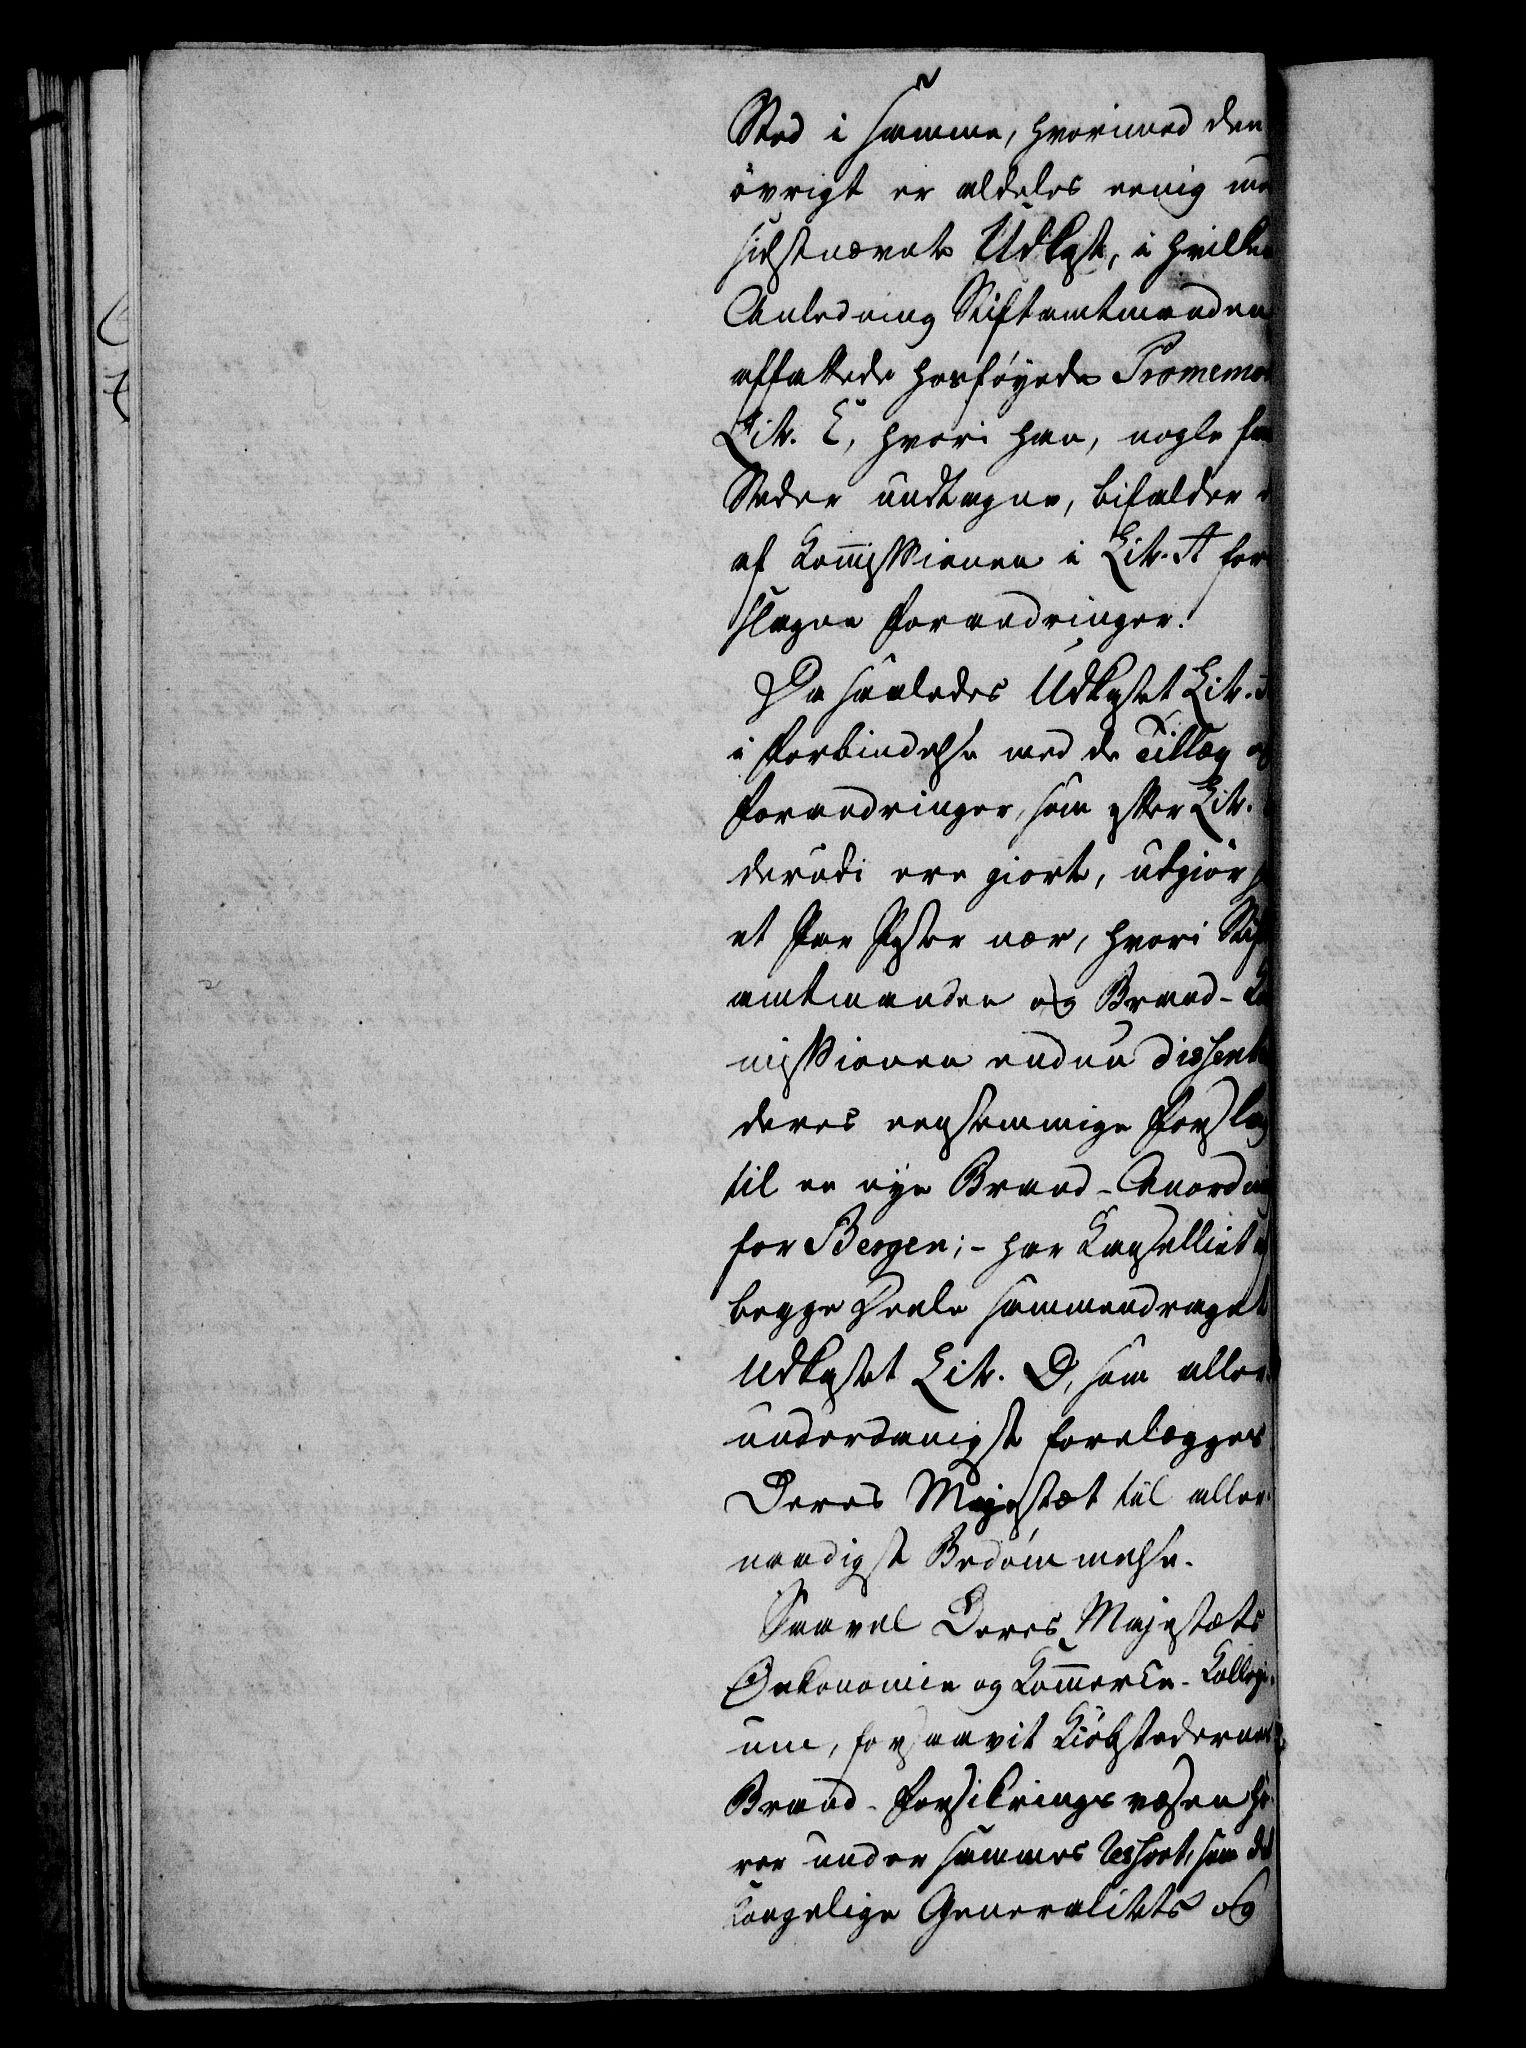 Sted i samme, hvorimod den
övrigt er aldeles eenig me
sidstnævnte Udkast, i hvilken
Anledning Stiftamtmanden
affattede hosföyede Promemor
Litr. C, hvori han, nogle faa
Steder undtagne, bifalder
af Kom̅issionen i Litr. A for
slagne Forandringer.
Da saaledes Udkastet Litr.
i Forbindelse med de Tillæg og
Forandringer, som efter Litr.
derudi ere giorte, udgiör
et Par Poster nær, hvori Stift
amtmanden og Brand-Ko
missionen endnu dissente
deres eenstemmige Forslag
til en nye Brand-Anordni
for Bergen; - har Kancelliet
begge Deele sammendraget
Udkastet Litr. D, som aller
underdanigst forelægges
Deres Majestæt til aller
naadigst Bedömmelse.
Saavel Deres Majestæts
Oekonomie og Kom̅erce-Kollegi-
um, forsaavit Kiöbstædernes
Brand-Forsikringsvæsen hö-
rer under sammes Ressort, som det
Kongelige Generalitets og